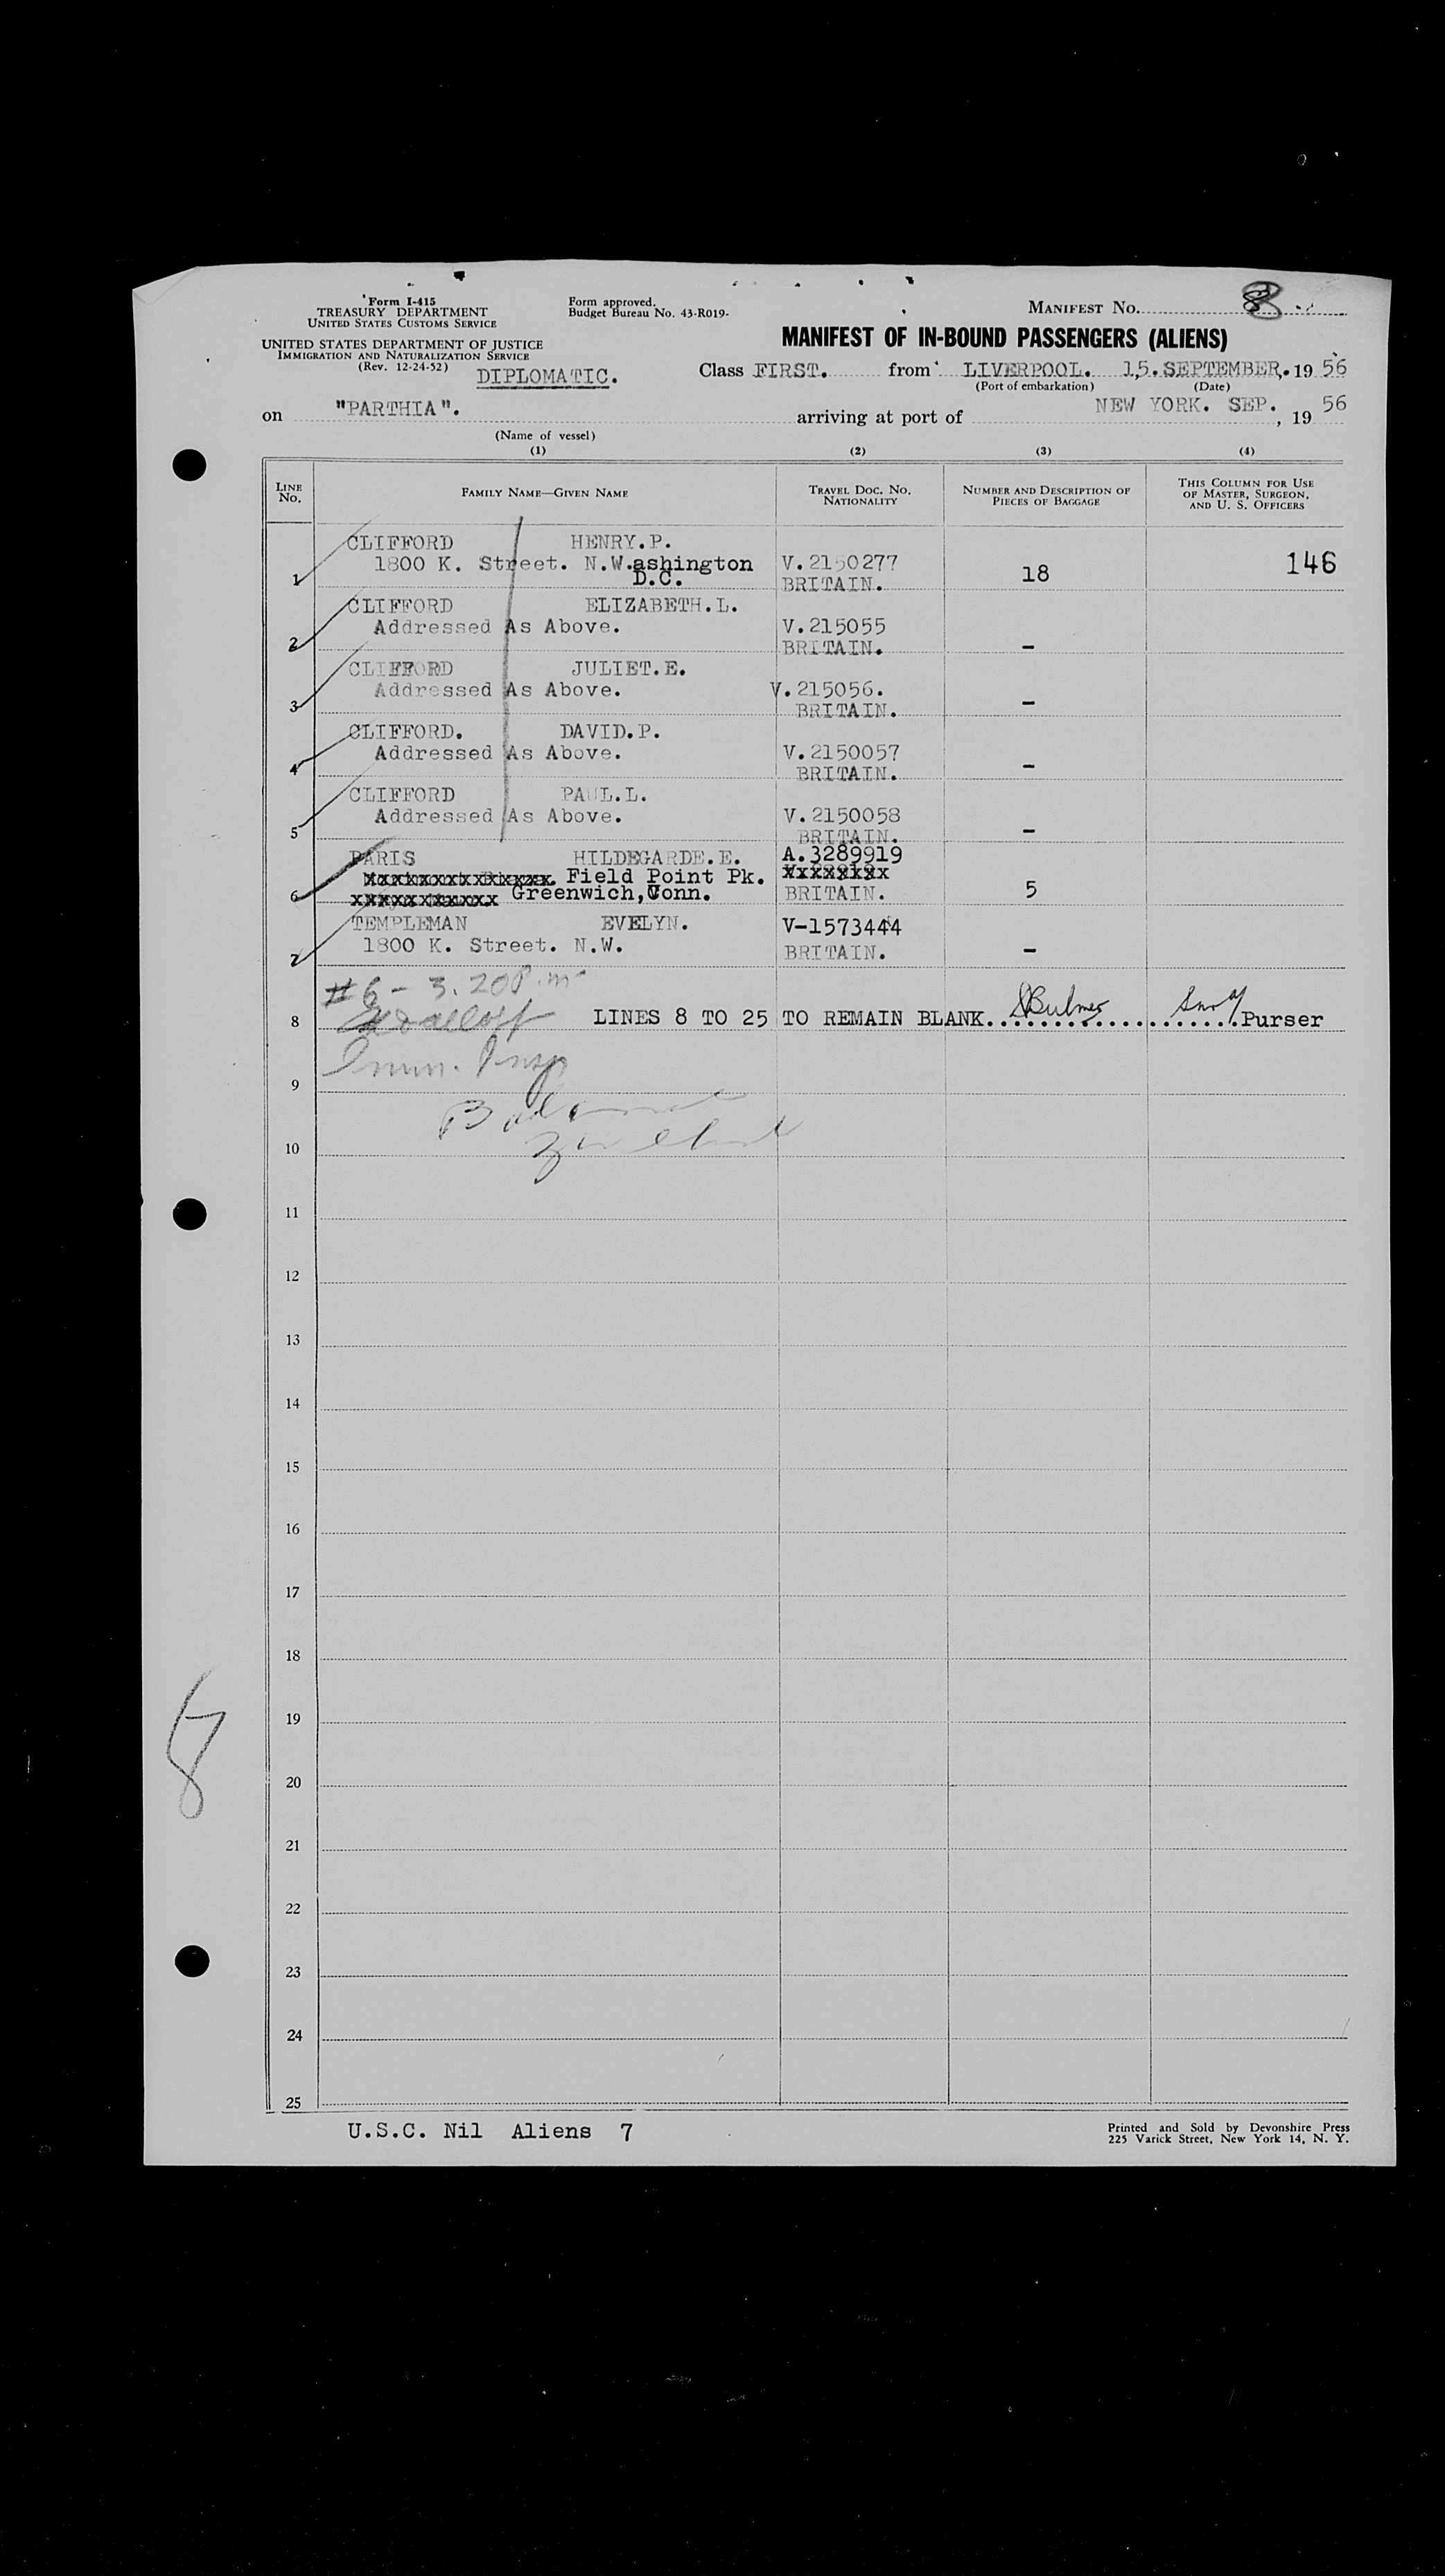 Form I-415
TREASURY DEPARTMENT
UNITED STATES CUSTOMS SERVICE
UNITED STATES DEPARTMENT OF JUSTICE
IMMIGRATION AND NATURALIZATION SERVICE
(Rev. 12-24-52)
DIPLOMATIC.
Form approved.
Budget Bureau No. 43-R019-
MANIFEST NO. 8
MANIFEST OF IN-BOUND PASSENGERS (ALIENS)
Class FIRST. from LIVERPOOL. 15. SEPTEMBER, 19 56
(Port of embarkation) (Date)
on "PARTHIA". arriving at port of NEW YORK. SEP. , 19 56
(Name of vessel)
(1) (2) (3) (4)
LINE NO. FAMILY NAME—GIVEN NAME TRAVEL DOC. NO. NATIONALITY NUMBER AND DESCRIPTION OF PIECES OF BAGGAGE THIS COLUMN FOR USE OF MASTER, SURGEON, AND U. S. OFFICERS
CLIFFORD HENRY.P.
1800 K. Street. N.W.ashington V.2150277 146
1 D.C. BRITAIN. 18
CLIFFORD ELIZABETH.L.
Addressed As Above. V.215055
2 BRITAIN. -
CLIFFORD JULIET.E.
Addressed As Above. V.215056.
3 BRITAIN. -
CLIFFORD. DAVID.P.
Addressed As Above. V.2150057
4 BRITAIN. -
CLIFFORD PAUL.L.
Addressed As Above. V.2150058
5 BRITAIN. -
PARIS HILDEGARDE.E. A.3289919
Field Point Pk.
6 Greenwich, Conn. BRITAIN. 5
TEMPLEMAN EVELYN. V-1573444
1800 K. Street. N.W.
7 BRITAIN. -
#6 - 3.20 P.m
8 LINES 8 TO 25 TO REMAIN BLANK. Bulmer Purser
Imm. Insp
9
10
11
12
13
14
15
16
17
18
8
19
20
21
22
23
24
25
U.S.C. Nil Aliens 7
Printed and Sold by Devonshire Press
225 Varick Street, New York 14, N. Y.